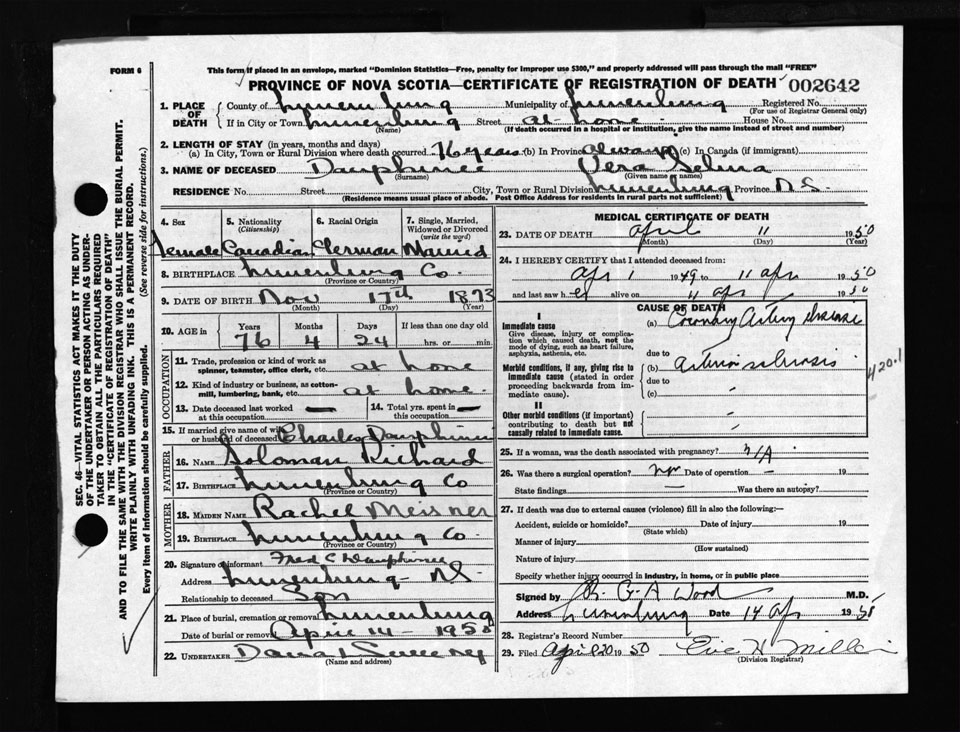 FORM 6
This form if placed in an envelope, marked "Dominion Statistics—Free, penalty for improper use $300," and properly addressed will pass through the mail "FREE"
PROVINCE OF NOVA SCOTIA—CERTIFICATE OF REGISTRATION OF DEATH 002642
1. PLACE OF DEATH County of Lunenburg Municipality of Lunenburg Registered No.
(For use of Registrar General only)
If in City or Town Lunenburg Street at home House No.
(Name) (If death occurred in a hospital or institution, give the name instead of street and number)
2. LENGTH OF STAY (in years, months and days)
(a) In City, Town or Rural Division where death occurred 76 years (b) In Province always (c) In Canada (if immigrant)
3. NAME OF DECEASED Dauphinee Vera Selma
(Surname) (Given name or names)
RESIDENCE No. Street City, Town or Rural Division Lunenburg Province N.S.
(Residence means usual place of abode. Post Office Address for residents in rural parts not sufficient)
4. Sex 5. Nationality (Citizenship) 6. Racial Origin 7. Single, Married, Widowed or Divorced (write the word)
Female Canadian German Married
8. BIRTHPLACE Lunenburg Co.
(Province or Country)
9. DATE OF BIRTH Nov 17th 1873
(Month) (Day) (Year)
10. AGE in Years Months Days If less than one day old
76 4 24 hrs. or min.
OCCUPATION
11. Trade, profession or kind of work as spinner, teamster, office clerk, etc. at home
12. Kind of industry or business, as cotton-mill, lumbering, bank, etc. at home
13. Date deceased last worked at this occupation — 14. Total yrs. spent in this occupation —
15. If married give name of wife or husband of deceased Charles Dauphinee
FATHER
16. NAME Soloman Richard
17. BIRTHPLACE Lunenburg Co
(Province or Country)
MOTHER
18. MAIDEN NAME Rachel Meisner
19. BIRTHPLACE Lunenburg Co.
(Province or Country)
20. Signature of informant Fred C Dauphinee
Address Lunenburg - N.S.
Relationship to deceased Son
21. Place of burial, cremation or removal Lunenburg
Date of burial or removal April 14 - 1950
22. UNDERTAKER
(Name and address)
MEDICAL CERTIFICATE OF DEATH
23. DATE OF DEATH April 11 1950
(Month) (Day) (Year)
24. I HEREBY CERTIFY that I attended deceased from:
Apr 1 1949 to 11 Apr 1950
and last saw her alive on 11 Apr 1950
CAUSE OF DEATH
I
Immediate cause
Give disease, injury or complication which caused death, not the mode of dying, such as heart failure, asphyxia, asthenia, etc.
(a) Coronary Artery disease
due to
Morbid conditions, if any, giving rise to immediate cause (stated in order proceeding backwards from immediate cause).
(b) Arteriosclerosis
due to
(c)
420.1
II
Other morbid conditions (if important) contributing to death but not causally related to immediate cause.
25. If a woman, was the death associated with pregnancy? N/A
26. Was there a surgical operation? no Date of operation — 19
State findings — Was there an autopsy?
27. If death was due to external causes (violence) fill in also the following:—
Accident, suicide or homicide? Date of injury 19
(State which)
Manner of injury
(How sustained)
Nature of injury
Specify whether injury occurred in industry, in home, or in public place
Signed by G. A Wood M.D.
Address Lunenburg Date 14 Apr 195
28. Registrar's Record Number
29. Filed April 20 1950
(Division Registrar)
SEC. 46—VITAL STATISTICS ACT MAKES IT THE DUTY
OF THE UNDERTAKER OR PERSON ACTING AS UNDER-
TAKER TO OBTAIN ALL THE PARTICULARS REQUIRED
IN THE "CERTIFICATE OF REGISTRATION OF DEATH"
AND TO FILE THE SAME WITH THE DIVISION REGISTRAR WHO SHALL ISSUE THE BURIAL PERMIT.
WRITE PLAINLY WITH UNFADING INK. THIS IS A PERMANENT RECORD.
Every item of information should be carefully supplied. (See reverse side for instructions.)